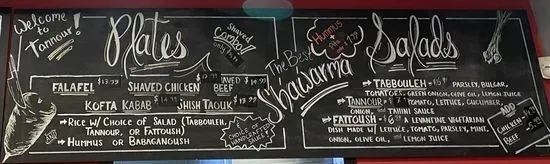 Welcome
to
Tannour!
Plates
Shaved
Combo!
FALAFEL $13.99 SHAVED CHICKEN BEEF $14.99
KOFTA KABAB SHISH TAOUK
→RICE W/ CHOICE OF SALAD (TABBOULEH,
TANNOUR, OR FATTOUSH)
→HUMMUS OR BABAGANOUSH
CHOICE OF
HAND-CRAFTED
SAUCE!
The Best
Shawarma
Hummus
+
Salads
→TABBOULEH PARSLEY, BULGAR,
TOMATOES, GREEN ONION, OLIVE OIL, LEMON JUICE
→TANNOUR TOMATO, LETTUCE, CUCUMBER,
ONION, TAHINI SAUCE
→FATTOUSH A LEVANTINE VEGETARIAN
DISH MADE W/ LETTUCE, TOMATO, PARSLEY, MINT,
ONION, OLIVE OIL, LEMON JUICE
ADD
CHICKEN
BEEF